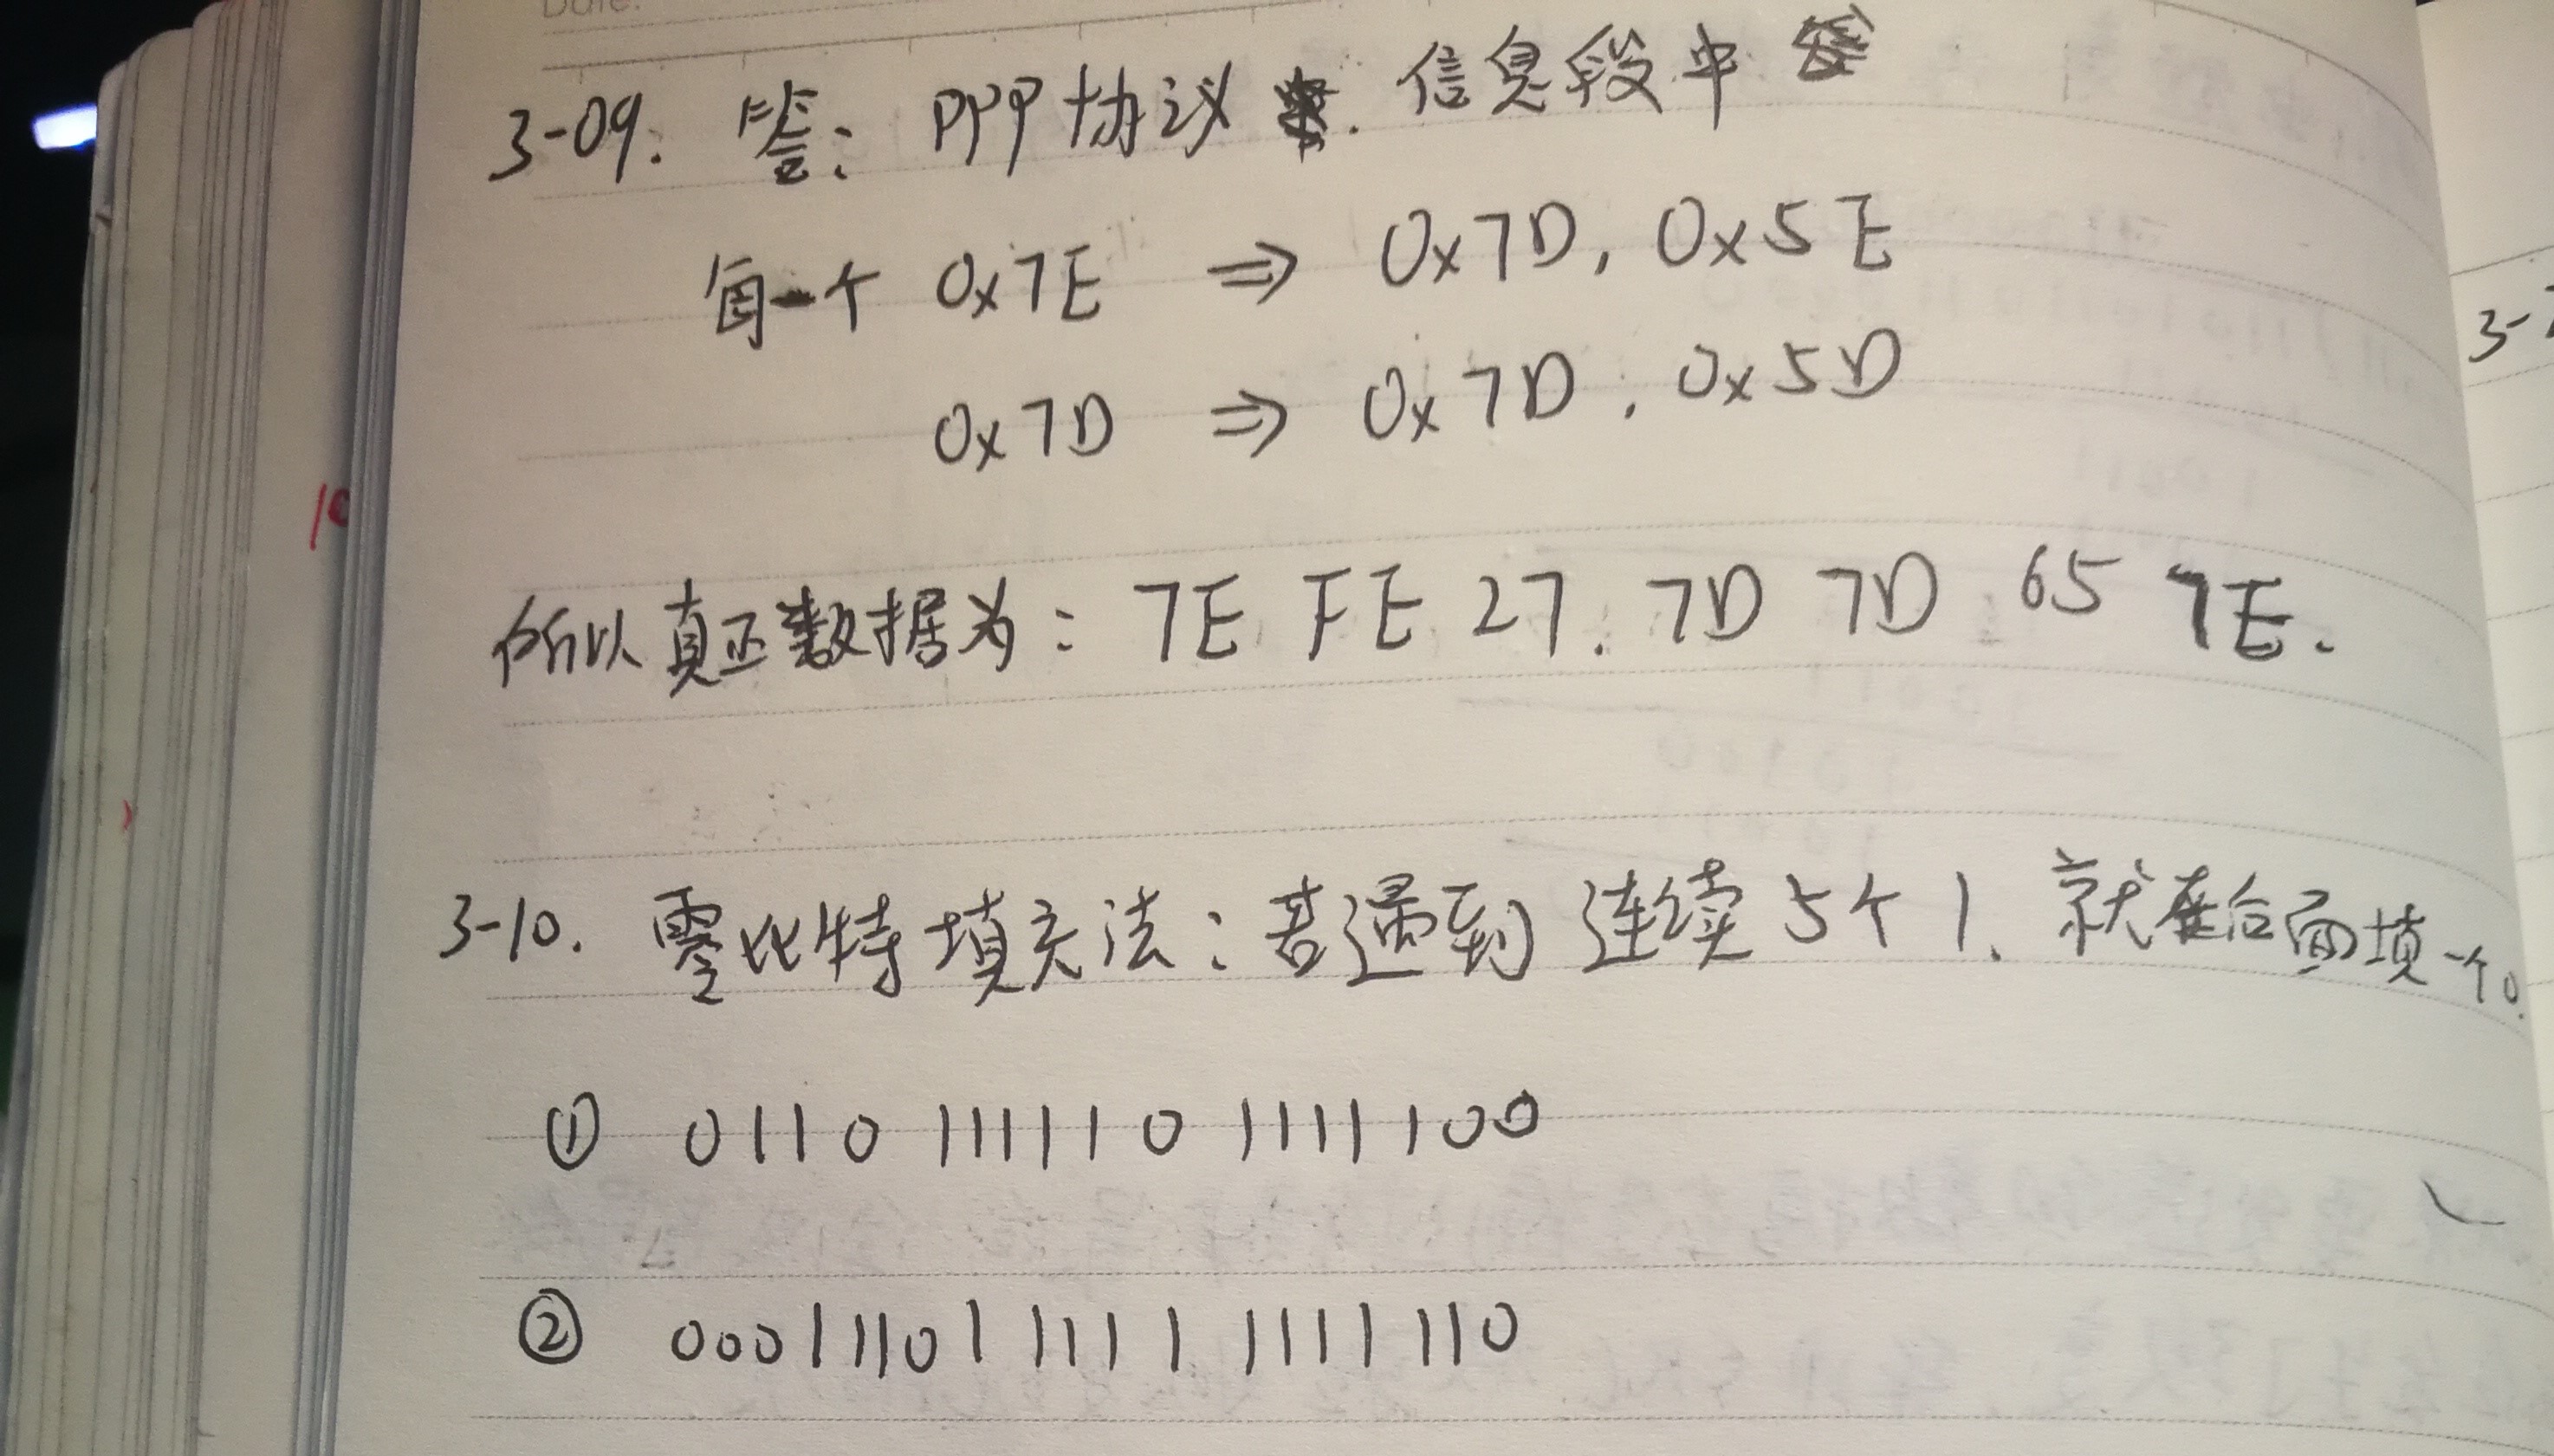 Date.
3-09. 答: PPP协议. 信息段中
每一个 0x7E ⇒ 0x7D, 0x5E
0x7D ⇒ 0x7D, 0x5D
所以真正数据为: 7E FE 27. 7D 7D 65 7E.
3-10. 零比特填充法: 若遇到 连续5个1、就在后面填一个0.
① 0110 111110 11111 00
② 0001110111111111110
3-